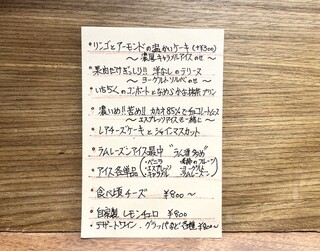 ・リンゴとアーモンドの温かいケーキ(+¥300)
～濃厚キャラメルアイスのせ～
・果肉ぎっしり!! 洋なしのテリーヌ
～ヨーグルトソルベのせ～
・いちじくのコンポートとなめらか抹茶プリン
・濃いめ!! 苦め!! カカオ85%でチョコレートムース
～エスプレッソアイスと一緒に～
・レアチーズケーキとシャインマスカット
・ラムレーズンアイス最中
・アイス各単品(・バニラ
・エスプレッソ
・キャラメル
・食べ頃チーズ ¥800～
・自家製レモンチェロ ¥800
・デザートワイン、グラッパなど各種 ¥800～